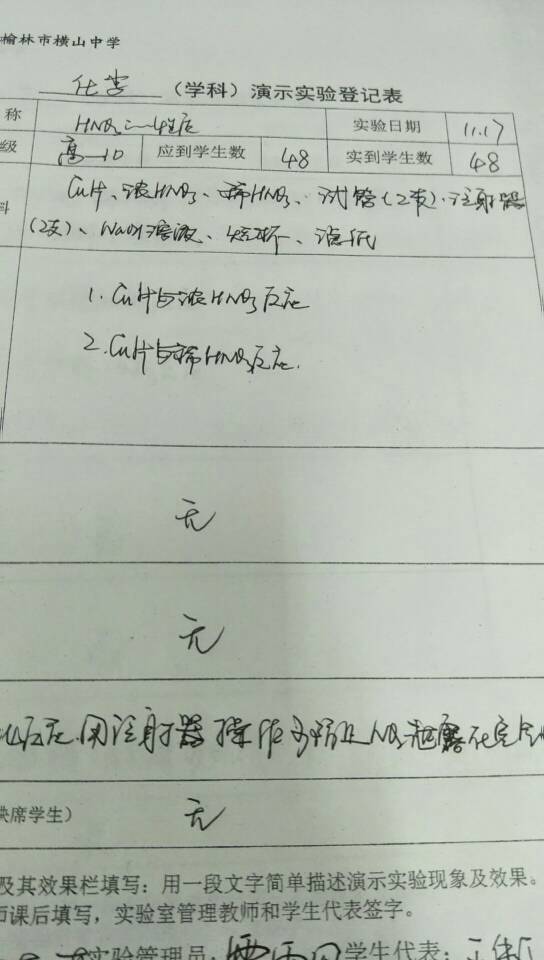 榆林市横山中学
化学 (学科) 演示实验登记表
称 HNO₃的性质 实验日期 11.17
级 高一10 应到学生数 48 实到学生数 48
料 Cu片、浓HNO₃、稀HNO₃、试管(2支)、注射器
(2支)、NaOH溶液、烧杯、滤纸
1. Cu片与浓HNO₃反应
2. Cu片与稀HNO₃反应.
无
无
反应.用注射器操作可防止
缺席学生) 无
及其效果栏填写：用一段文字简单描述演示实验现象及效果。
师课后填写，实验室管理教师和学生代表签字。
实验管理员: 学生代表: